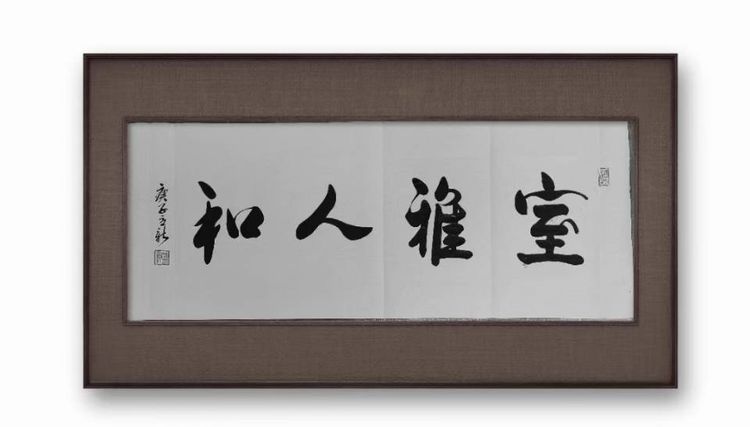 室雅人和
庚子之秋